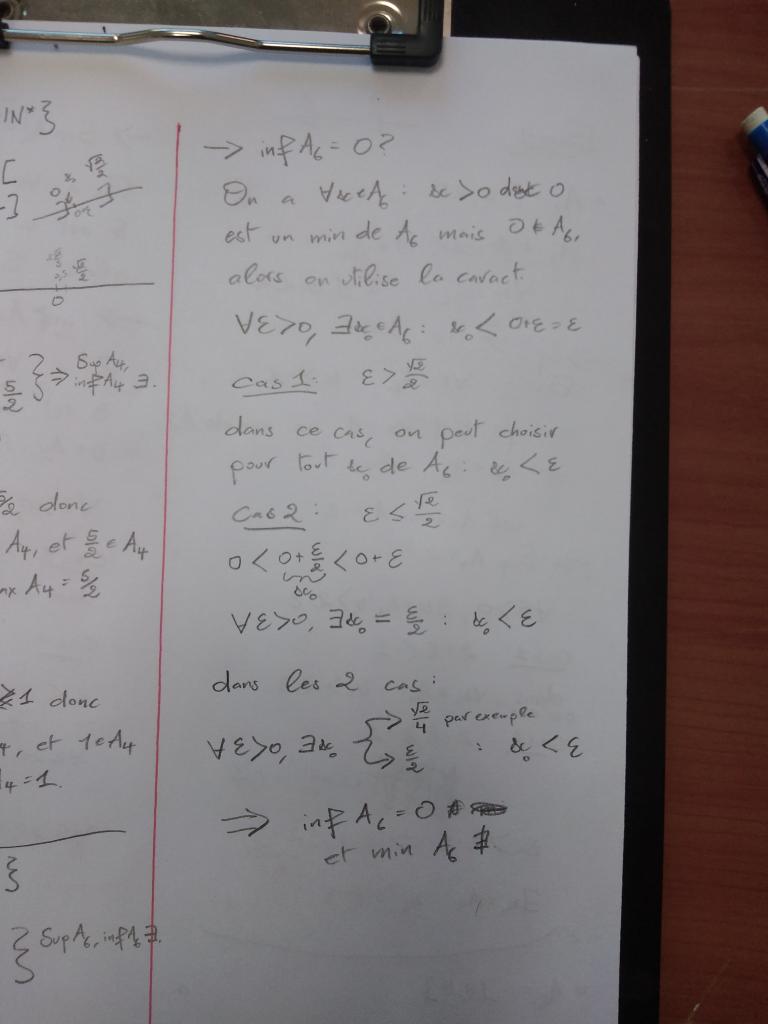 IN*}
[
0 x₀ √2/2
√2/2
0
5/2 } ⇒ Sup A₄,
inf A₄ ∃.
5/2 donc
A₄, et 5/2 ∈ A₄
max A₄ = 5/2
≥1 donc
₄, et 1 ∈ A₄
₄ = 1.
}
} Sup A₆, inf A₆ ∃.
→ inf A₆ = 0 ?
On a ∀x∈A₆ : x > 0 donc 0
est un min de A₆ mais 0 ∉ A₆,
alors on utilise la caract.
∀ε>0, ∃x₀∈A₆ : x₀ < 0+ε = ε
cas 1 : ε > √2/2
dans ce cas, on peut choisir
pour tout x₀ de A₆ : x₀ < ε
Cas 2 : ε ≤ √2/2
0 < 0+ε/2 < 0+ε
x₀
∀ε>0, ∃x₀ = ε/2 : x₀ < ε
dans les 2 cas :
→ √2/4 par exemple
∀ε>0, ∃x₀ → ε/2 : x₀ < ε
⇒ inf A₆ = 0
et min A₆ ∄